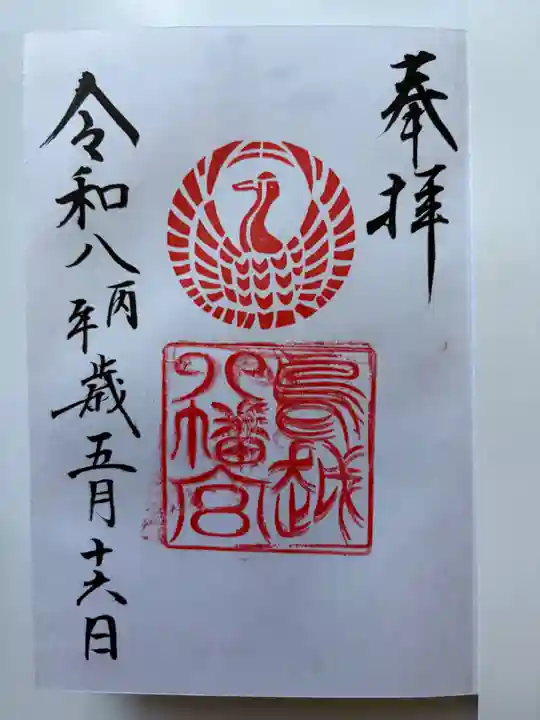 奉拝
鳥越
八幡宮
令和八丙年歳五月十六日